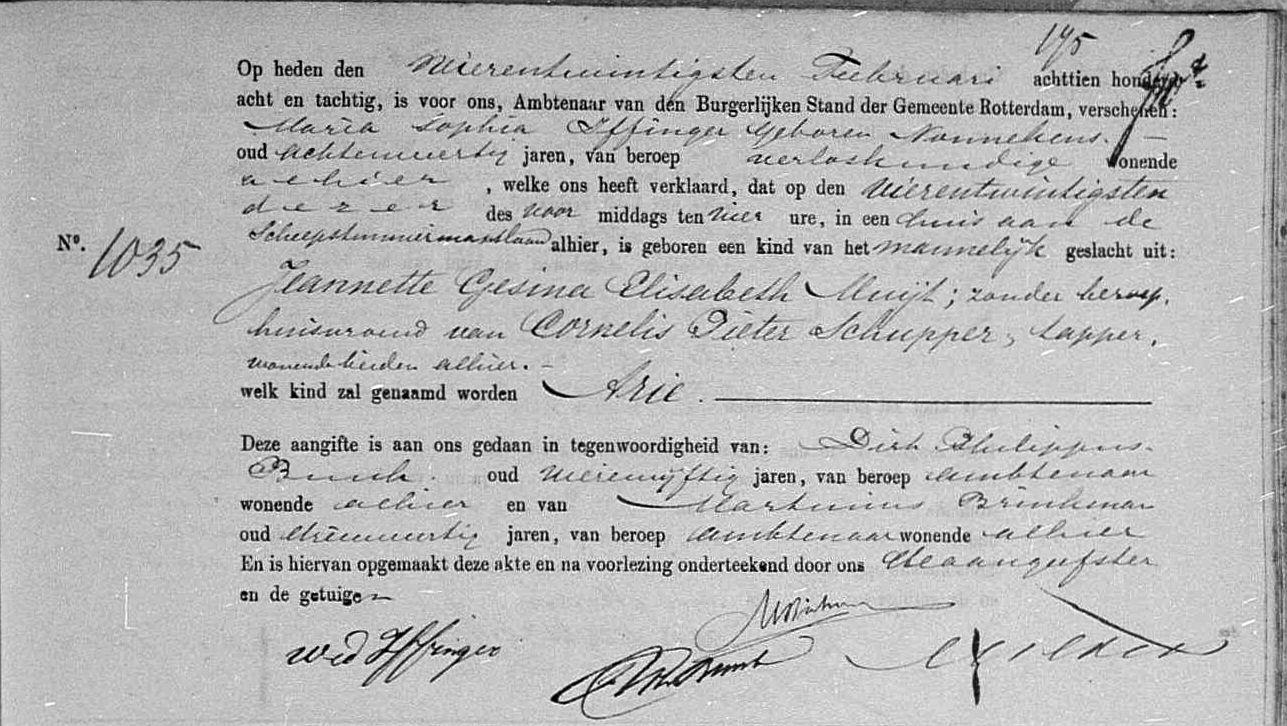 175
Op heden den Vierentwintigsten Februari achttien honderd
acht en tachtig, is voor ons, Ambtenaar van den Burgerlijken Stand der Gemeente Rotterdam, verschenen:
Maria Sophia Iffinger geboren Nonnekens.
oud achtenveertig jaren, van beroep verloskundige wonende
alhier, welke ons heeft verklaard, dat op den vierentwintigsten
dezer des voor middags ten vier ure, in een huis aan de
Scheepstimmermanslaan alhier, is geboren een kind van het mannelijk geslacht uit:
Nº. 1035
Jeannette Gesina Elisabeth Muijt; zonder beroep,
huisvrouw van Cornelis Pieter Schupper, tapper,
wonende beiden alhier.
welk kind zal genaamd worden Arie.
Deze aangifte is aan ons gedaan in tegenwoordigheid van: Dirk Philippus
oud vierenvijftig jaren, van beroep ambtenaar
wonende alhier en van Martinus Brinkman
oud drieenveertig jaren, van beroep ambtenaar wonende alhier
En is hiervan opgemaakt deze akte en na voorlezing onderteekend door ons de aangeefster
en de getuigen
wed Iffinger